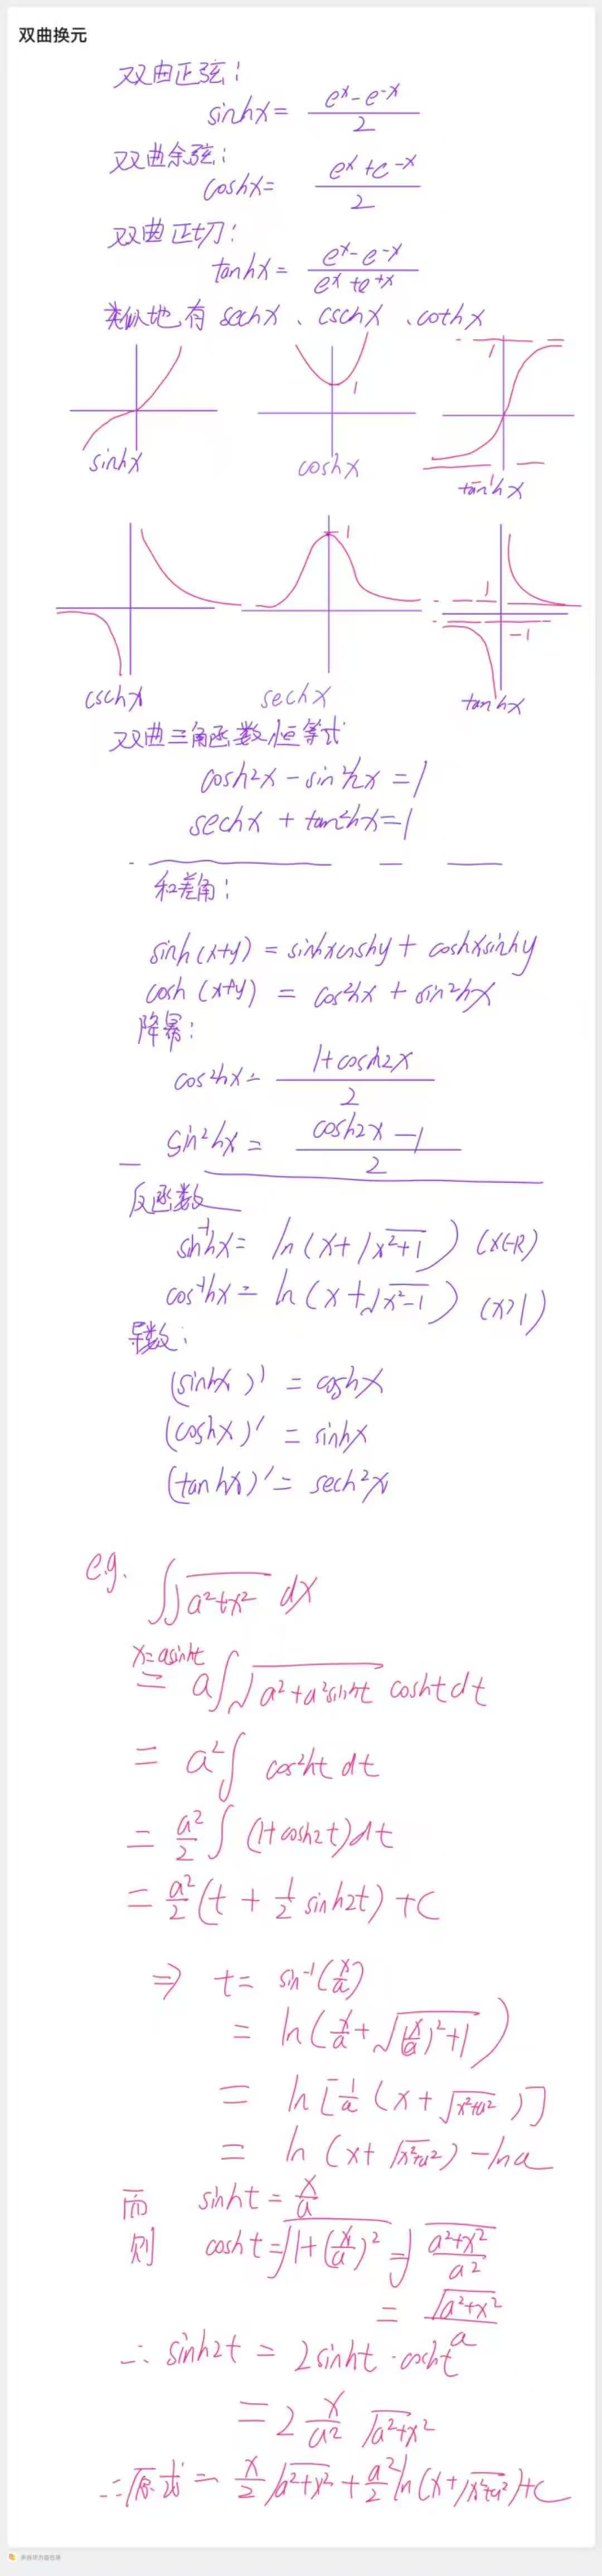 双曲换元
双曲正弦:
sinhx = (e^x - e^-x)/2
双曲余弦:
coshx = (e^x + e^-x)/2
双曲正切:
tanhx = (e^x - e^-x)/(e^x + e^+x)
类似地,有 sechx、cschx、cothx
1
1
sinhx
coshx
-1
tanhx
1
1
-1
cschx
sechx
tanhx
双曲三角函数恒等式
cosh2x - sin²hx = 1
sechx + tan²hx = 1
和差角:
sinh(x+y) = sinhxcoshy + coshxsinhy
cosh(x+y) = cos²hx + sin²hx
降幂:
cos²hx = (1+cosh2x)/2
sin²hx = (cosh2x - 1)/2
反函数
sin⁻¹hx = ln(x+√(x²+1)) (x∈R)
cos⁻¹hx = ln(x+√(x²-1)) (x>1)
导数:
(sinhx)' = coshx
(coshx)' = sinhx
(tanhx)' = sech²x
e.g. ∫√(a²+x²) dx
x=asinht
= a∫√(a²+a²sin²ht) coshtdt
= a²∫ cos²ht dt
= a²/2 ∫ (1+cosh2t)dt
= a²/2 (t + 1/2 sinh2t) + C
⇒ t = sin⁻¹(x/a)
= ln(x/a + √((x/a)²+1))
= ln[1/a (x+√(x²+a²))]
= ln(x+√(x²+a²)) - lna
而 sinht = x/a
则 cosht = √(1+(x/a)²) = √((a²+x²)/a²)
= √(a²+x²)/a
∴ sinh2t = 2sinht·cosht
= 2 x/a² √(a²+x²)
∴原式 = x/2 √(a²+x²) + a²/2 ln(x+√(x²+a²)) + C